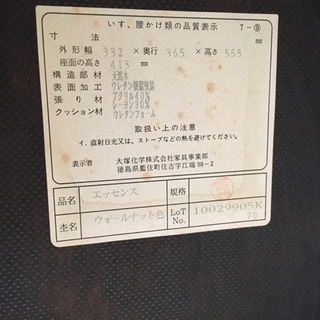 いす、腰かけ類の品質表示 7-⑨
寸法 mm
外形幅 332 ×奥行 365 ×高さ 555
座面の高さ 413 mm
構造部材 天然木
表面加工 ウレタン樹脂塗装
張り材 アクリル40%
レーヨン30%
クッション材 ウレタンフォーム
取扱い上の注意
イ.直射日光又は、ストーブなどの熱を避けてください。
大塚化学株式会社家具事業部
徳島県藍住町住吉字江端98-2
品名 エッセンス 規格
杢名 ウォールナット色 LoT No. 10029905K
70